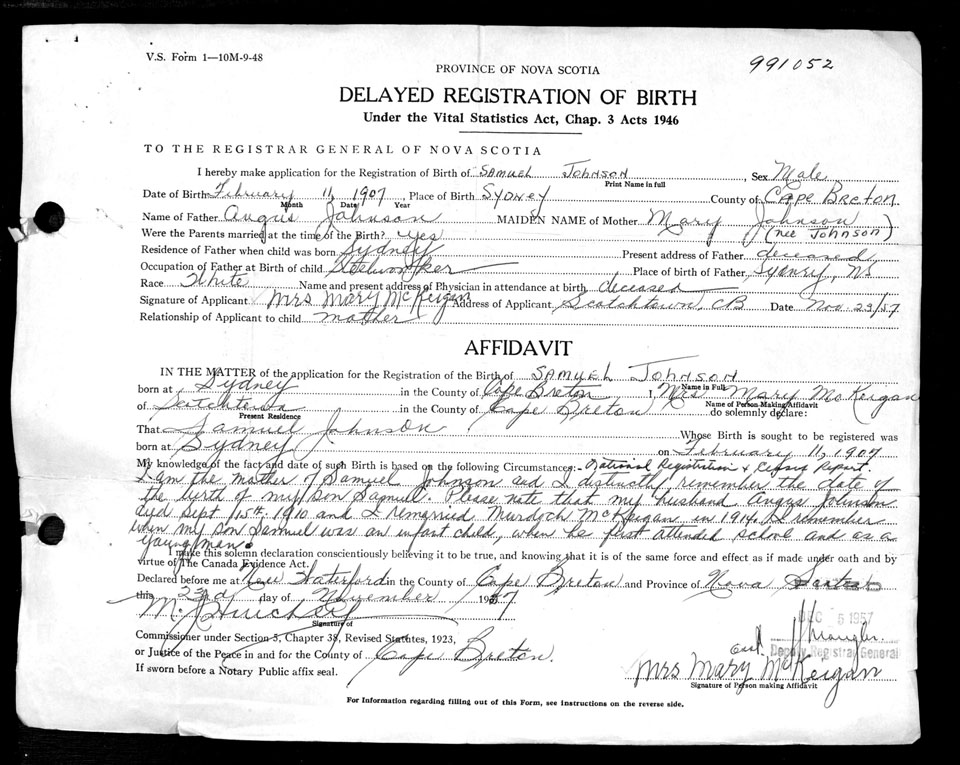 V.S. Form 1—10M-9-48
991052
PROVINCE OF NOVA SCOTIA
DELAYED REGISTRATION OF BIRTH
Under the Vital Statistics Act, Chap. 3 Acts 1946
TO THE REGISTRAR GENERAL OF NOVA SCOTIA
I hereby make application for the Registration of Birth of SAMUEL JOHNSON, Sex Male
Print Name in full
Date of Birth February 11, 1907 Place of Birth SYDNEY County of CAPE BRETON
Month Date Year
Name of Father Angus Johnson MAIDEN NAME of Mother Mary Johnson
Were the Parents married at the time of the Birth? yes (nee Johnson)
Residence of Father when child was born Sydney Present address of Father deceased
Occupation of Father at Birth of child Steelworker Place of birth of Father, Sydney, NS
Race White Name and present address of Physician in attendance at birth deceased
Signature of Applicant Mrs Mary McKeigan Address of Applicant Scotchtown, CB Date Nov. 23/57
Relationship of Applicant to child mother
AFFIDAVIT
IN THE MATTER of the application for the Registration of the Birth of SAMUEL JOHNSON
Name in Full
born at Sydney in the County of Cape Breton I, Mrs Mary McKeigan
Name of Person Making Affidavit
of Scotchtown in the County of Cape Breton do solemnly declare:
Present Residence
That Samuel Johnson Whose Birth is sought to be registered was
born at Sydney on February 11, 1907
My knowledge of the fact and date of such Birth is based on the following Circumstances:- National Registration & Report.
I am the mother of Samuel Johnson and I distinctly remember the date of
the birth of my son Samuel. Please note that my husband Angus Johnson
died Sept 15th, 1910 and I remarried Murdoch McKeigan in 1914. I remember
when my son Samuel was an infant child, when he first attended school and as a
young man.
I make this solemn declaration conscientiously believing it to be true, and knowing that it is of the same force and effect as if made under oath and by
virtue of The Canada Evidence Act.
Declared before me at New Waterford in the County of Cape Breton and Province of Nova Scotia
this 23rd day of November 1957
Signature of
DEC 5 1957
Commissioner under Section 5, Chapter 38, Revised Statutes, 1923,
or Justice of the Peace in and for the County of Cape Breton.
Deputy Registrar General
If sworn before a Notary Public affix seal.
Mrs Mary McKeigan
Signature of Person making Affidavit
For Information regarding filling out of this Form, see Instructions on the reverse side.